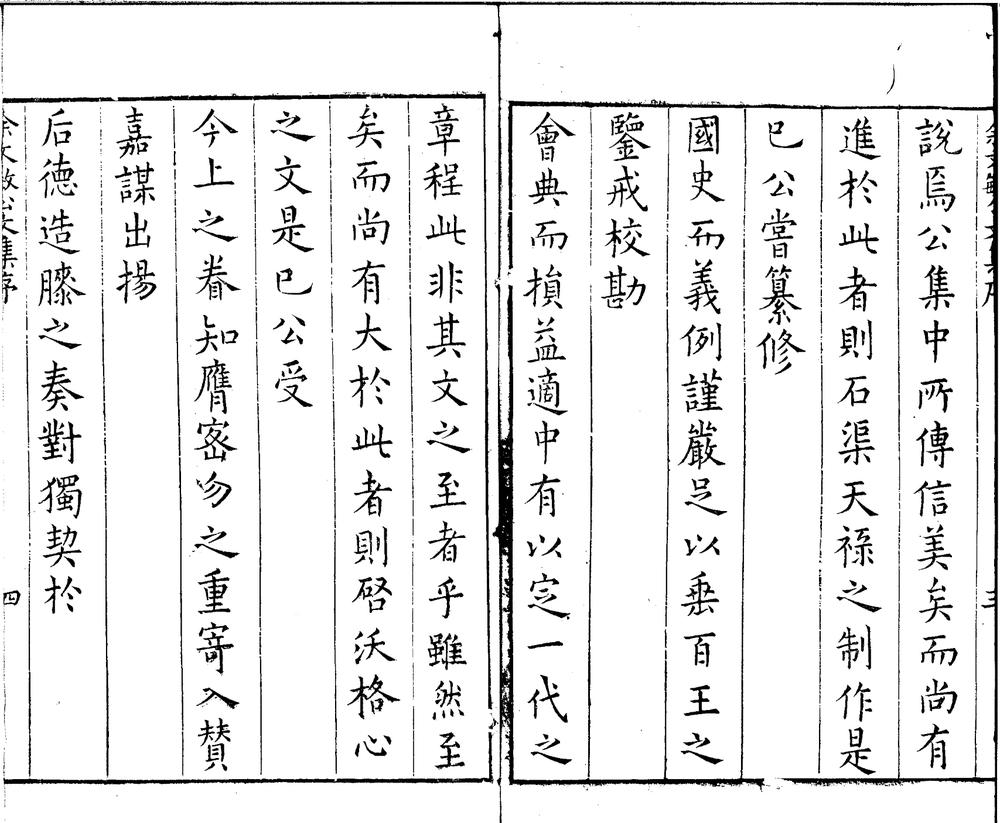 說焉公集中所傳信美矣而尚有
進於此者則石渠天祿之制作是
巳公嘗纂修
國史而義例謹嚴足以垂百王之
鑒戒校勘
會典而損益適中有以定一代之
章程此非其文之至者乎雖然至
矣而尚有大於此者則啓沃格心
之文是巳公受
今上之眷知膺密勿之重寄入賛
嘉謀出揚
后德造膝之奏對獨契於
四